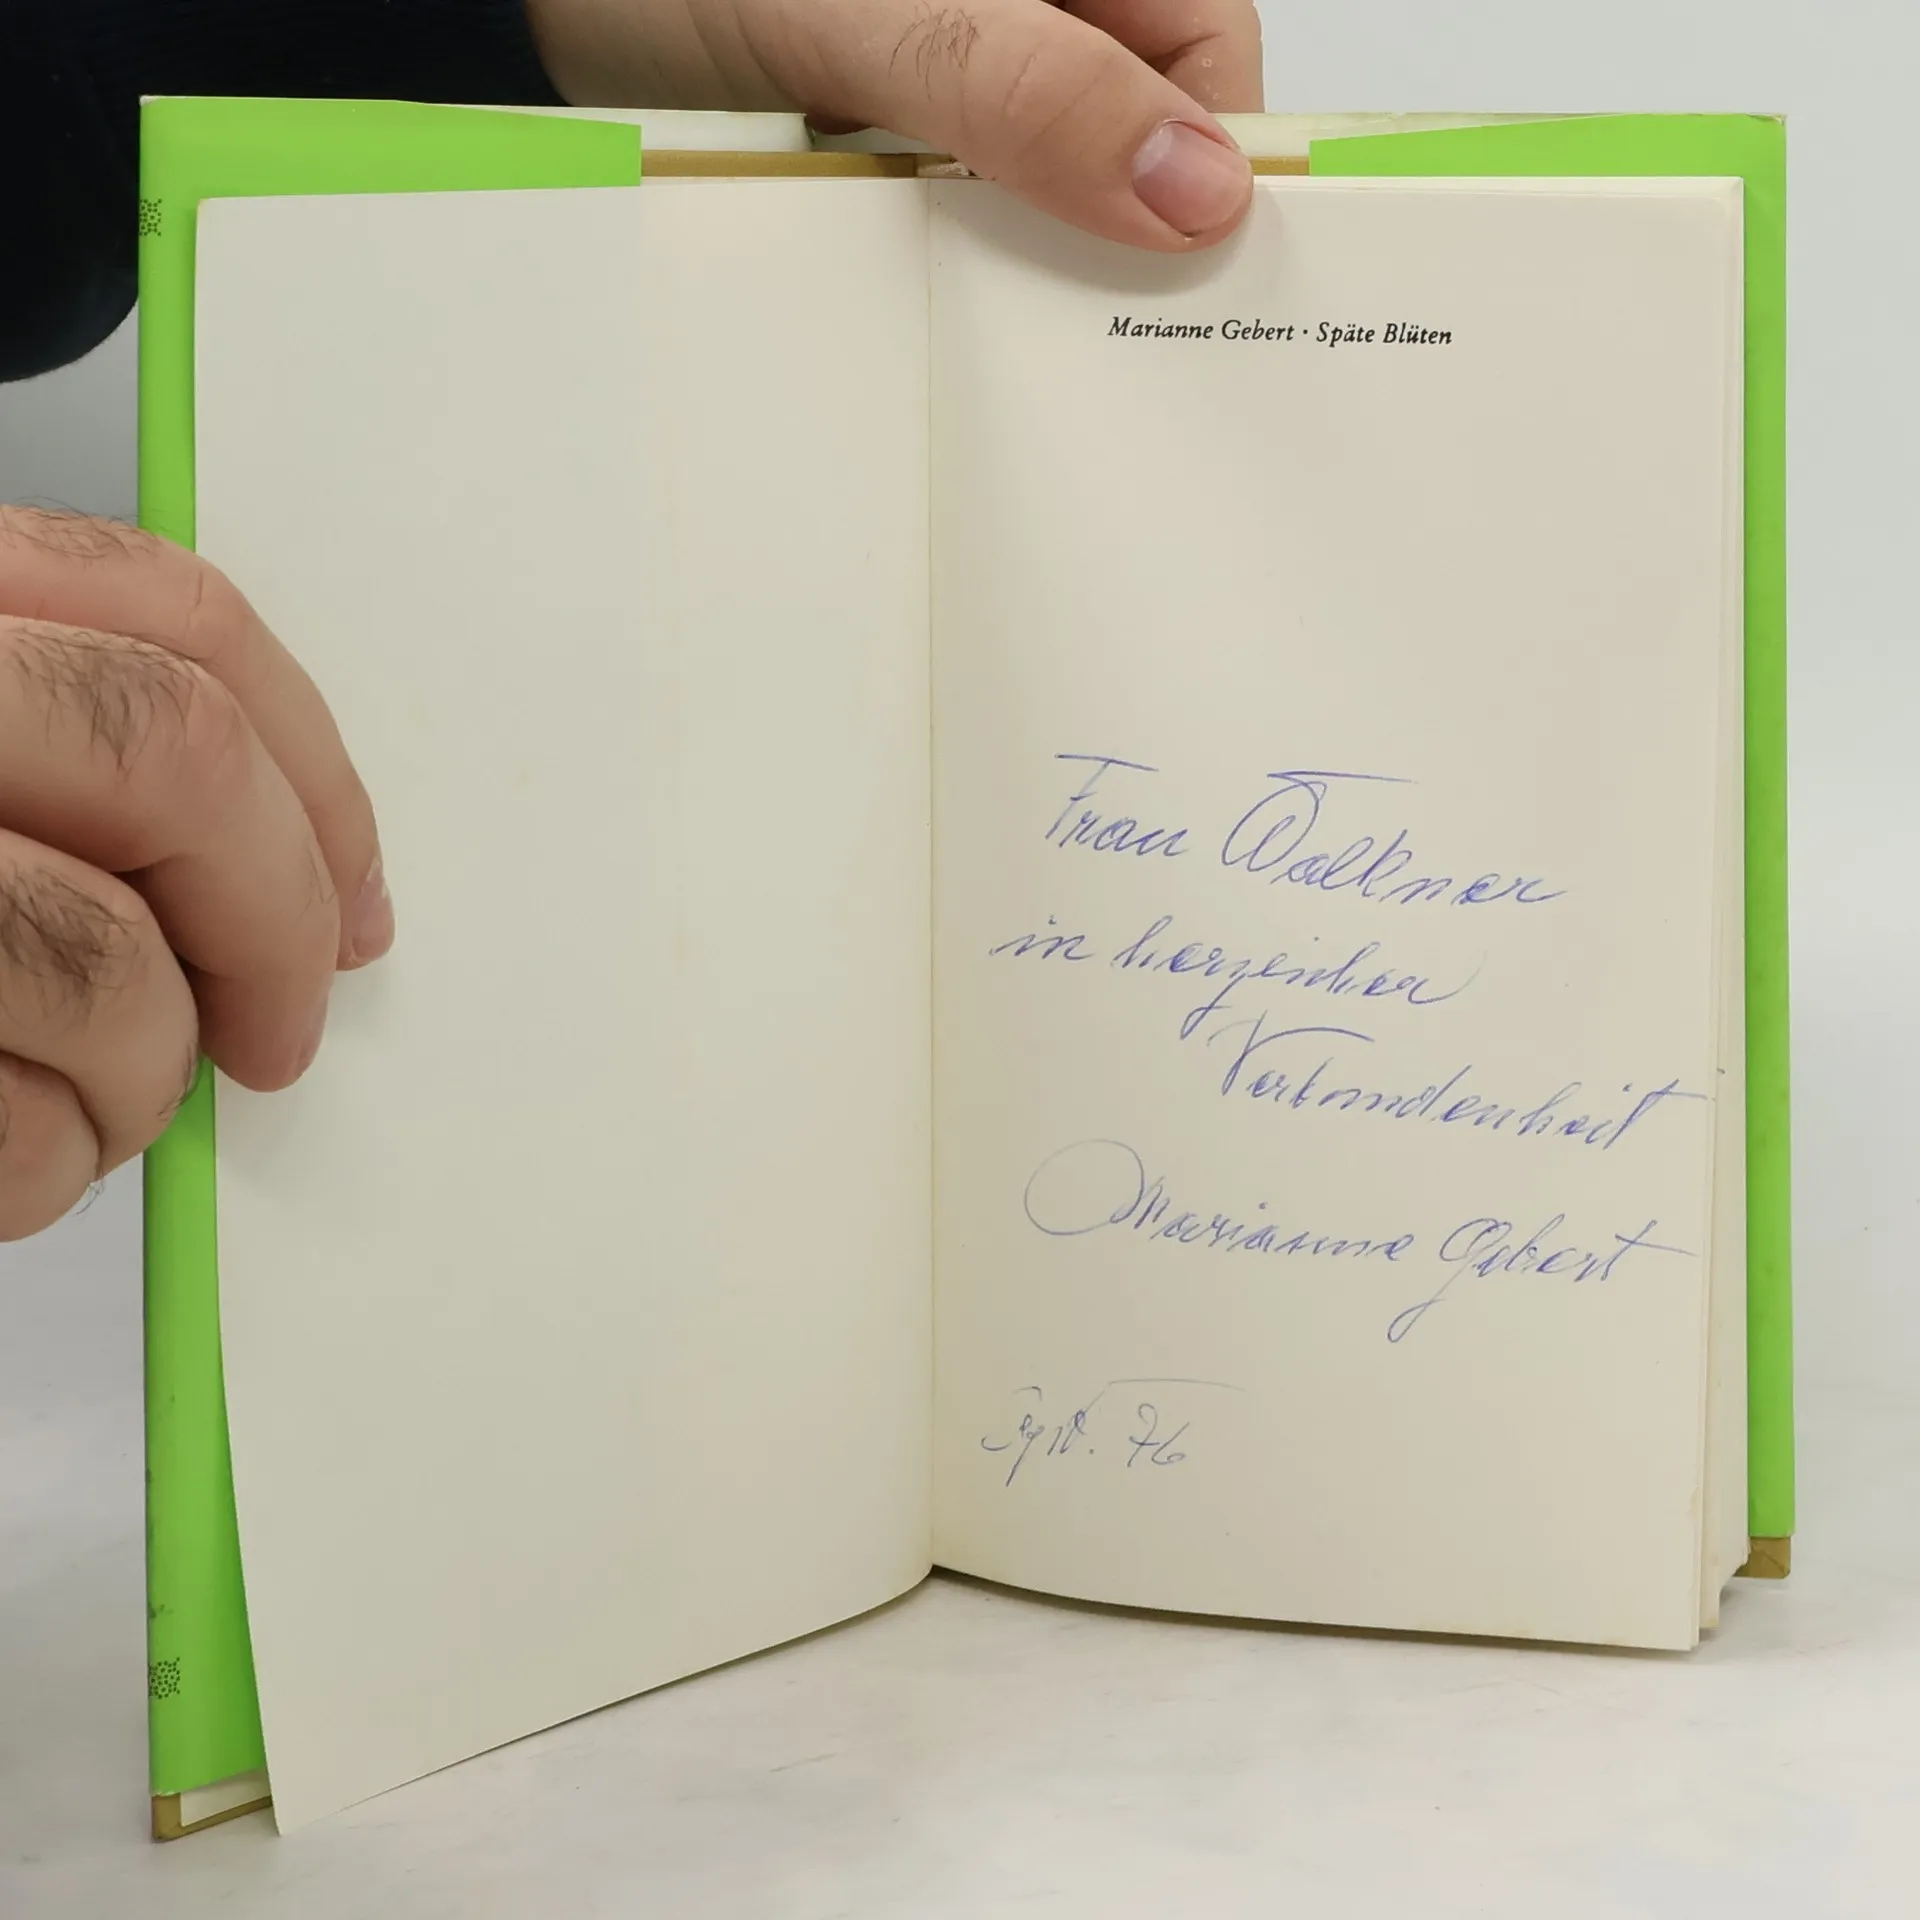 Marianne Gebert · Späte Blüten
Frau Walkner
in herzlicher
Verbundenheit
Marianne Gebert
76